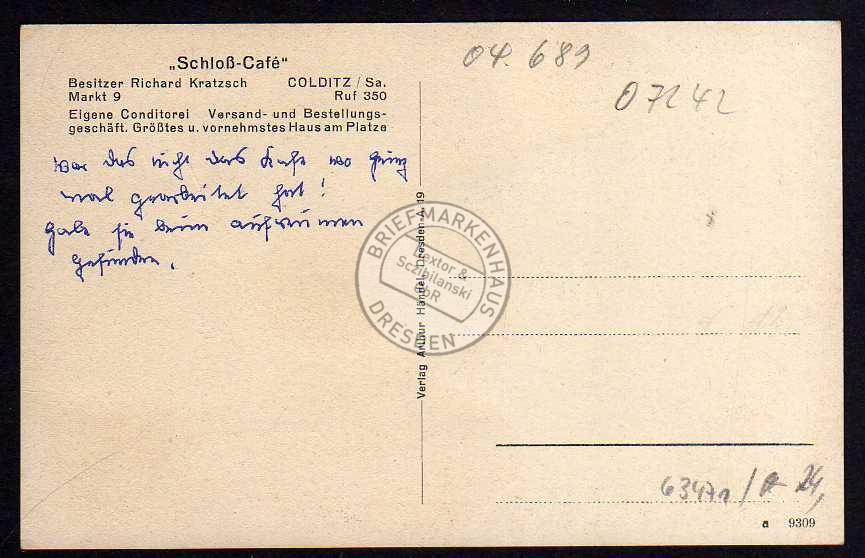 „Schloß-Café“
Besitzer Richard Kratzsch COLDITZ / Sa.
Markt 9 Ruf 350
Eigene Conditorei Versand- und Bestellungs-
geschäft. Größtes u. vornehmstes Haus am Platze
war das nicht das Kafe wo Heinz
mal gearbeitet hat!
Habe sie beim aufreumen
gefunden.
Verlag Arthur Händel, Dresden-A 19
BRIEFMARKENHAUS
Dextor &
Sczibilanski
GbR
DRESDEN
04. 689
07242
63471
24,
a 9309